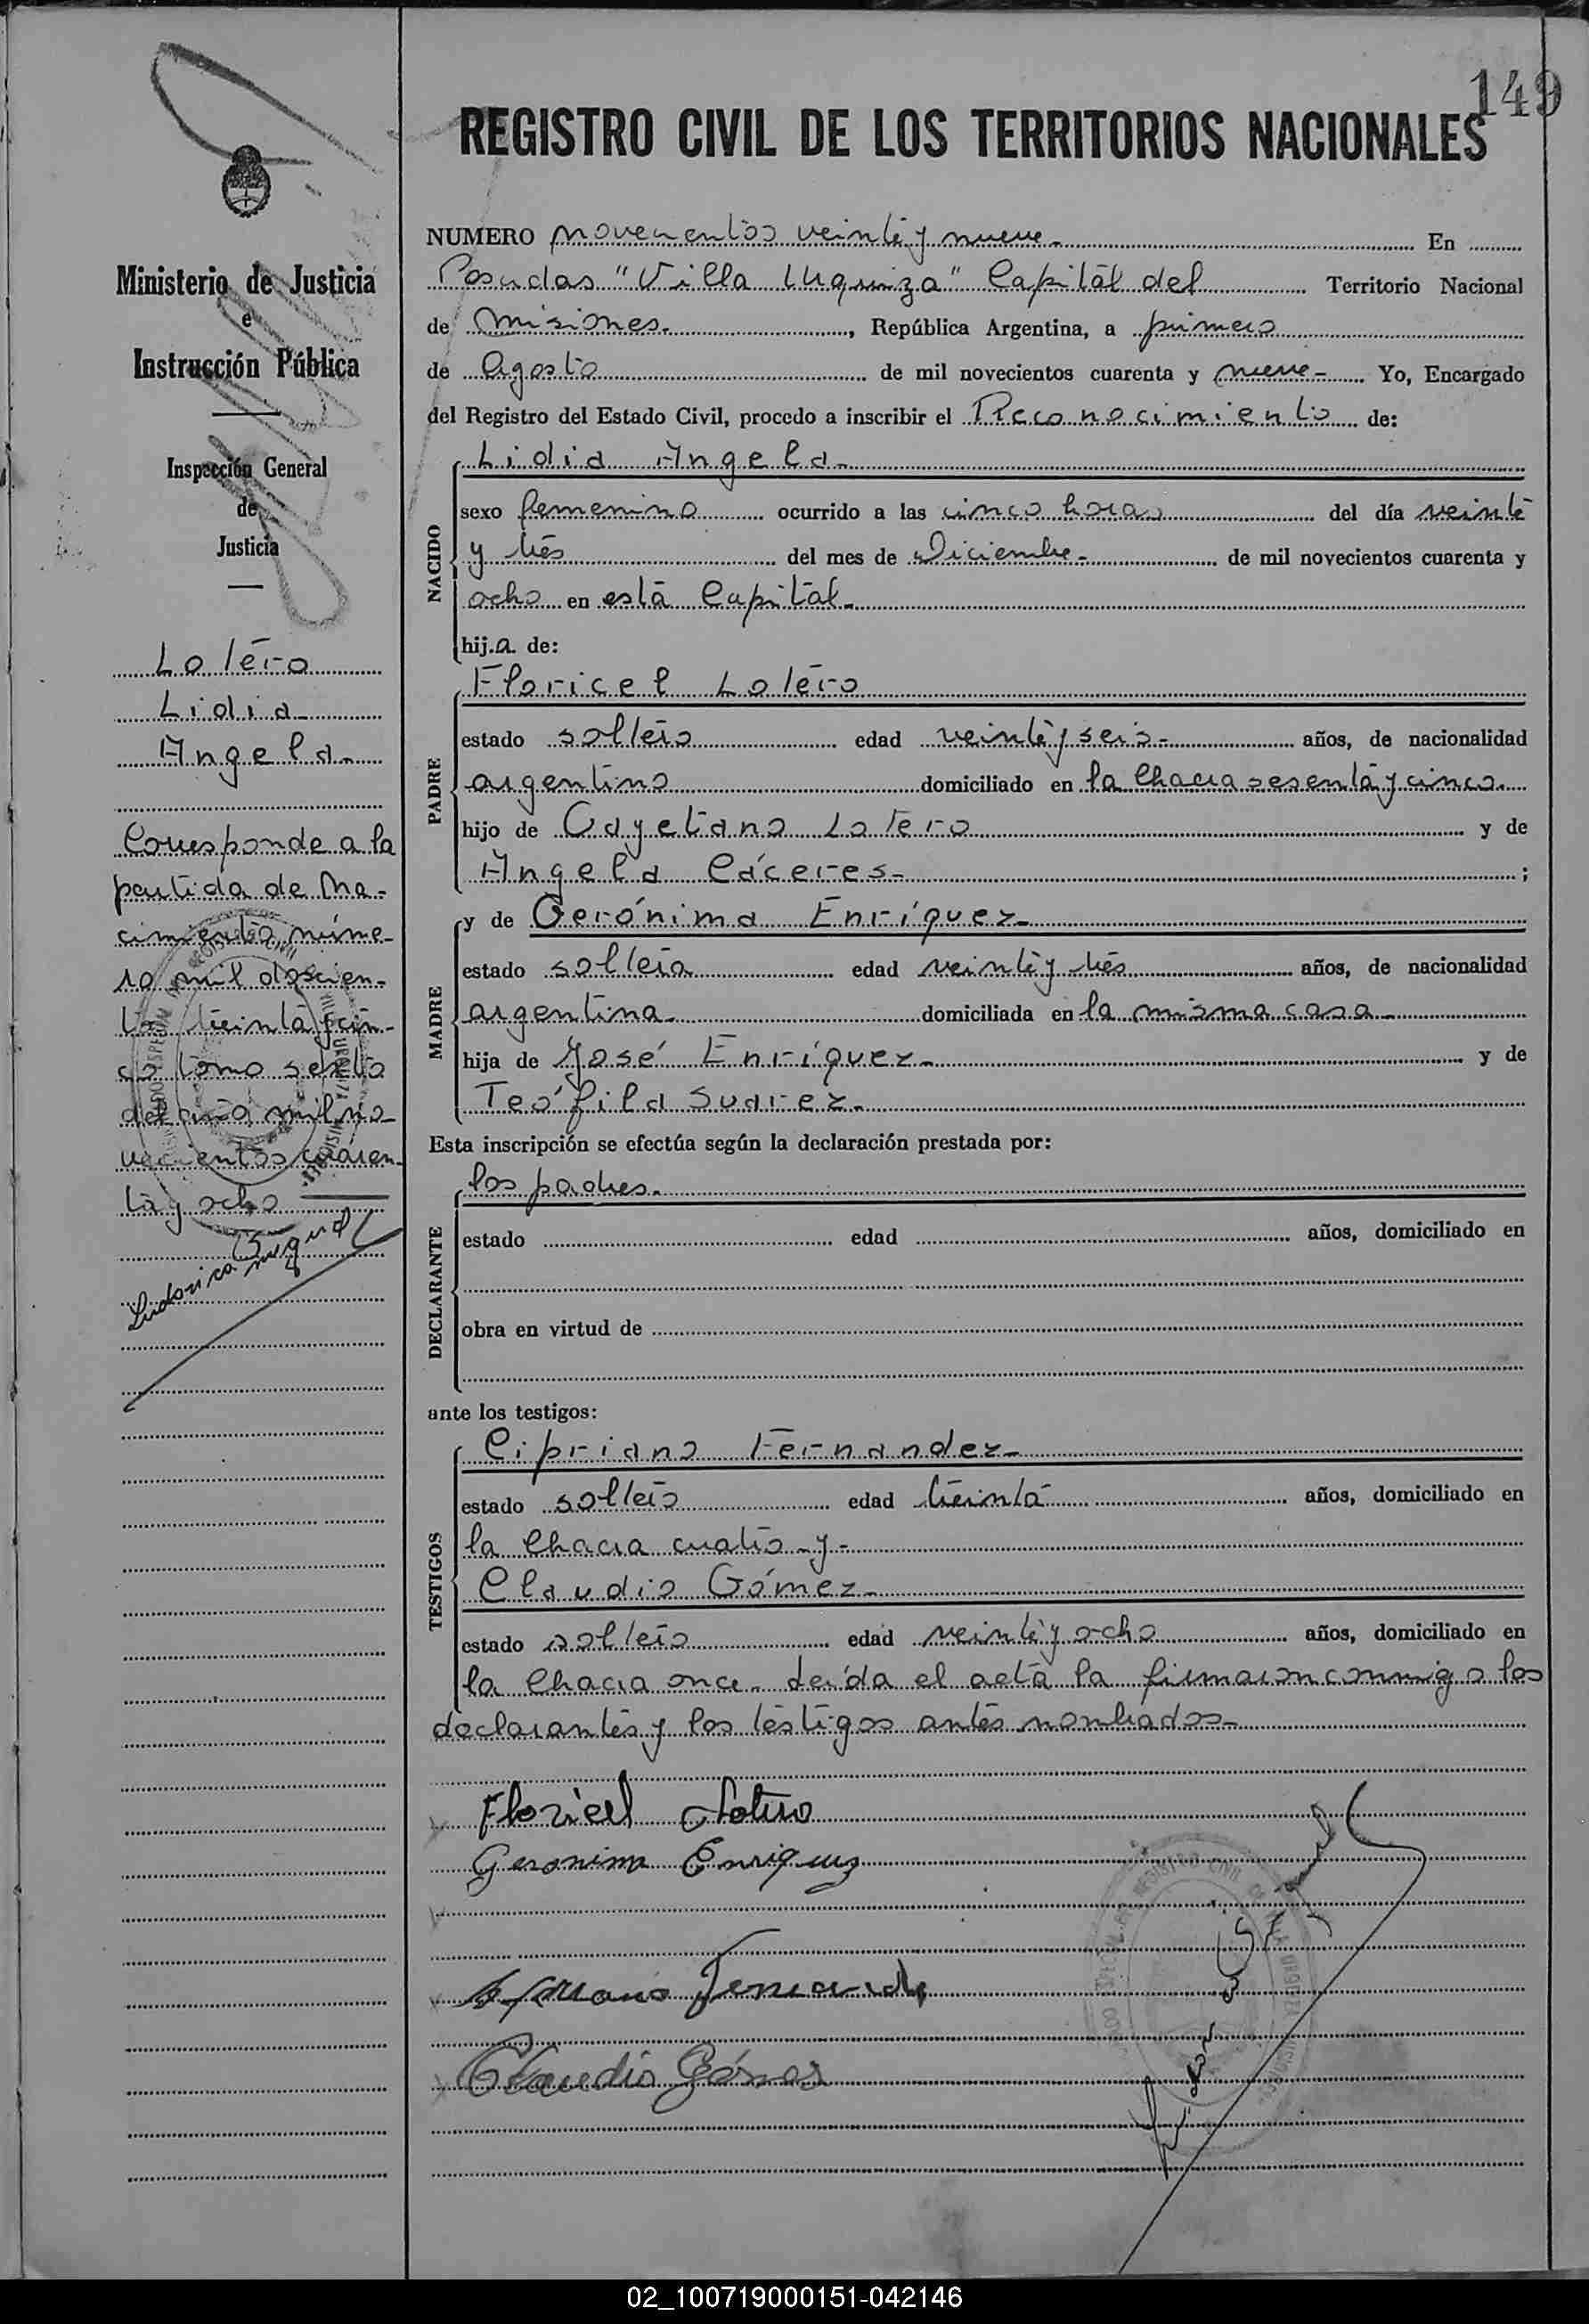 149
REGISTRO CIVIL DE LOS TERRITORIOS NACIONALES
Ministerio de Justicia
e
Instrucción Pública
Inspección General
de
Justicia
Lotero
Lidia
Angela.
Corresponde a la
partida de Na-
cimiento núme-
ro mil doscien-
to treinta y cin-
co tomo sexto
del año mil no-
vecientos cuaren-
ta y ocho
NUMERO novecientos veinte y nueve.- En
Posadas "Villa Urquiza" Capital del Territorio Nacional
de Misiones., República Argentina, a primero
de Agosto de mil novecientos cuarenta y nueve- Yo, Encargado
del Registro del Estado Civil, procedo a inscribir el Reconocimiento de:
NACIDO
Lidia Angela.
sexo femenino ocurrido a las cinco horas del día veinte
y tres del mes de Diciembre- de mil novecientos cuarenta y
ocho en esta Capital.
hija de:
PADRE
Floricel Lotero
estado soltero edad veinte y seis- años, de nacionalidad
argentino domiciliado en la Chacra sesenta y cinco.
hijo de Cayetano Lotero y de
Angela Cáceres- ;
MADRE
y de Gerónima Enríquez-
estado soltera edad veinte y tres años, de nacionalidad
argentina. domiciliada en la misma casa-
hija de José Enríquez- y de
Teófila Suarez.
Esta inscripción se efectúa según la declaración prestada por:
DECLARANTE
los padres.
estado edad años, domiciliado en
obra en virtud de
ante los testigos:
TESTIGOS
Cipriano Fernandez-
estado soltero edad treinta años, domiciliado en
la Chacra cuatro-y-
Claudio Gómez-
estado soltero edad veinte y ocho años, domiciliado en
la Chacra once. Leída el acta la firmaron conmigo los
declarantes y los testigos antes nombrados-
Floricel Lotero
Geronima Enriquez
Cipriano Fernandez
Claudio Gómez
02_100719000151-042146